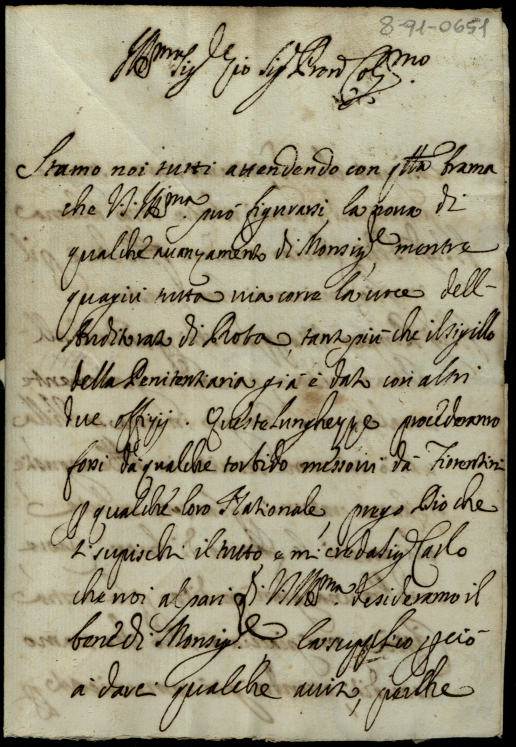 8-91-0651
Ill.mo Sig.re Zio Sig.r Pron Col.mo
Stamo noi tutti attendendo con q.lla brama
che V.S. Ill.ma può figurarsi la nova di
qualche avanzamento di Monsig.re mentre
quagiù tutta via corre la voce dell-
Auditorat di Rota, tant più che il sigillo
della Penitentiaria già è dat con altri
due offitij. Queste lungheze procederanno
forsi da qualche torbido messovi da Fiorentini
p qualche loro Nationale, prego Dio che
il tutto e mi creda Sig. Carlo
che noi al pari di V.S. Ill.ma desideramo il
bene di Monsig.re la supplico p ciò
a darci qualche avist, perche